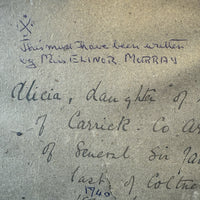 This must have been written
by Miss ELINOR MURRAY
Alicia, daughter of
of Carrick. Co Ar
of General Sir Ja
last of Coltne
1740